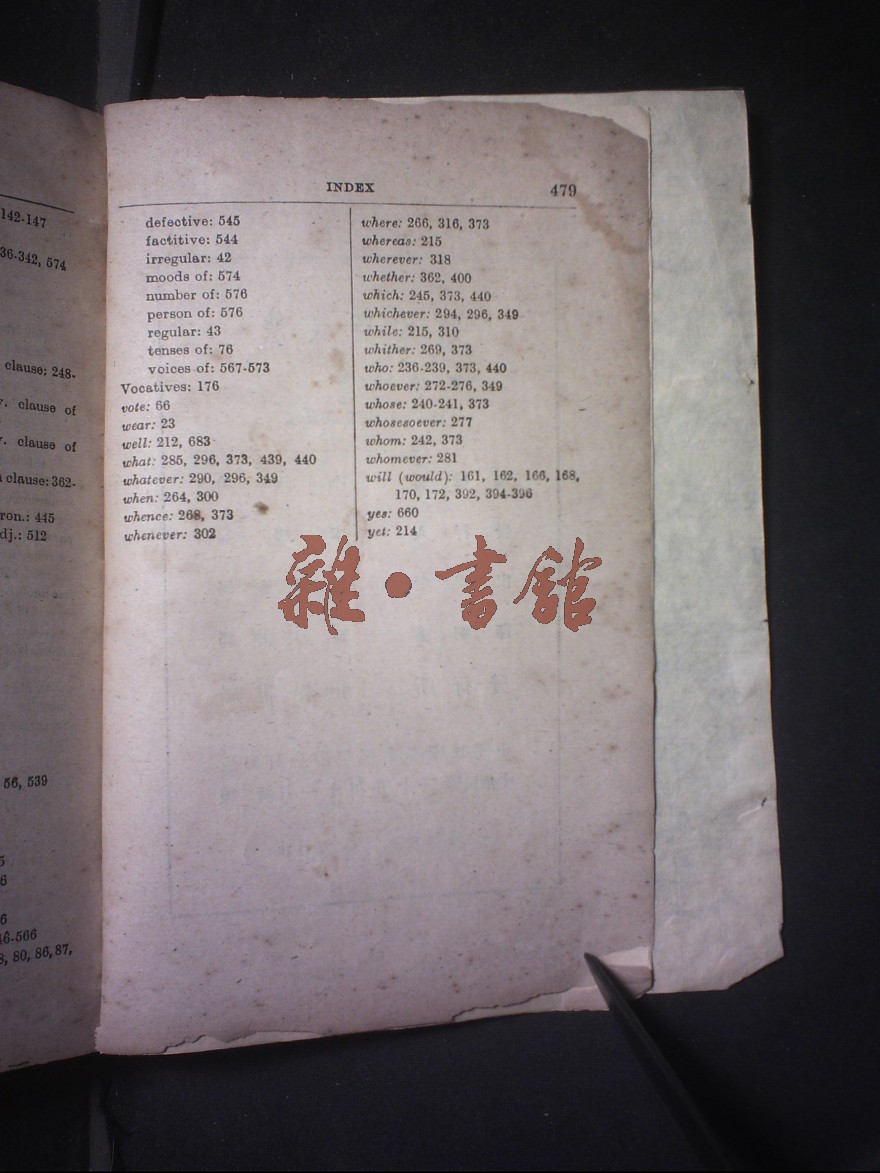 142-147
36-342, 574
clause: 248-
clause of
clause of
clause: 362-
ron.: 445
dj.: 512
56, 539
5
6
6
46-566
8, 80, 86, 87,
INDEX 479
defective: 545
factitive: 544
irregular: 42
moods of: 574
number of: 576
person of: 576
regular: 43
tenses of: 76
voices of: 567-573
Vocatives: 176
vote: 66
wear: 23
well: 212, 683
what: 285, 296, 373, 439, 440
whatever: 290, 296, 349
when: 264, 300
whence: 268, 373
whenever: 302
where: 266, 316, 373
whereas: 215
wherever: 318
whether: 362, 400
which: 245, 373, 440
whichever: 294, 296, 349
while: 215, 310
whither: 269, 373
who: 236-239, 373, 440
whoever: 272-276, 349
whose: 240-241, 373
whosesoever: 277
whom: 242, 373
whomever: 281
will (would): 161, 162, 166, 168,
170, 172, 392, 394-396
yes: 660
yet: 214
雜•書館